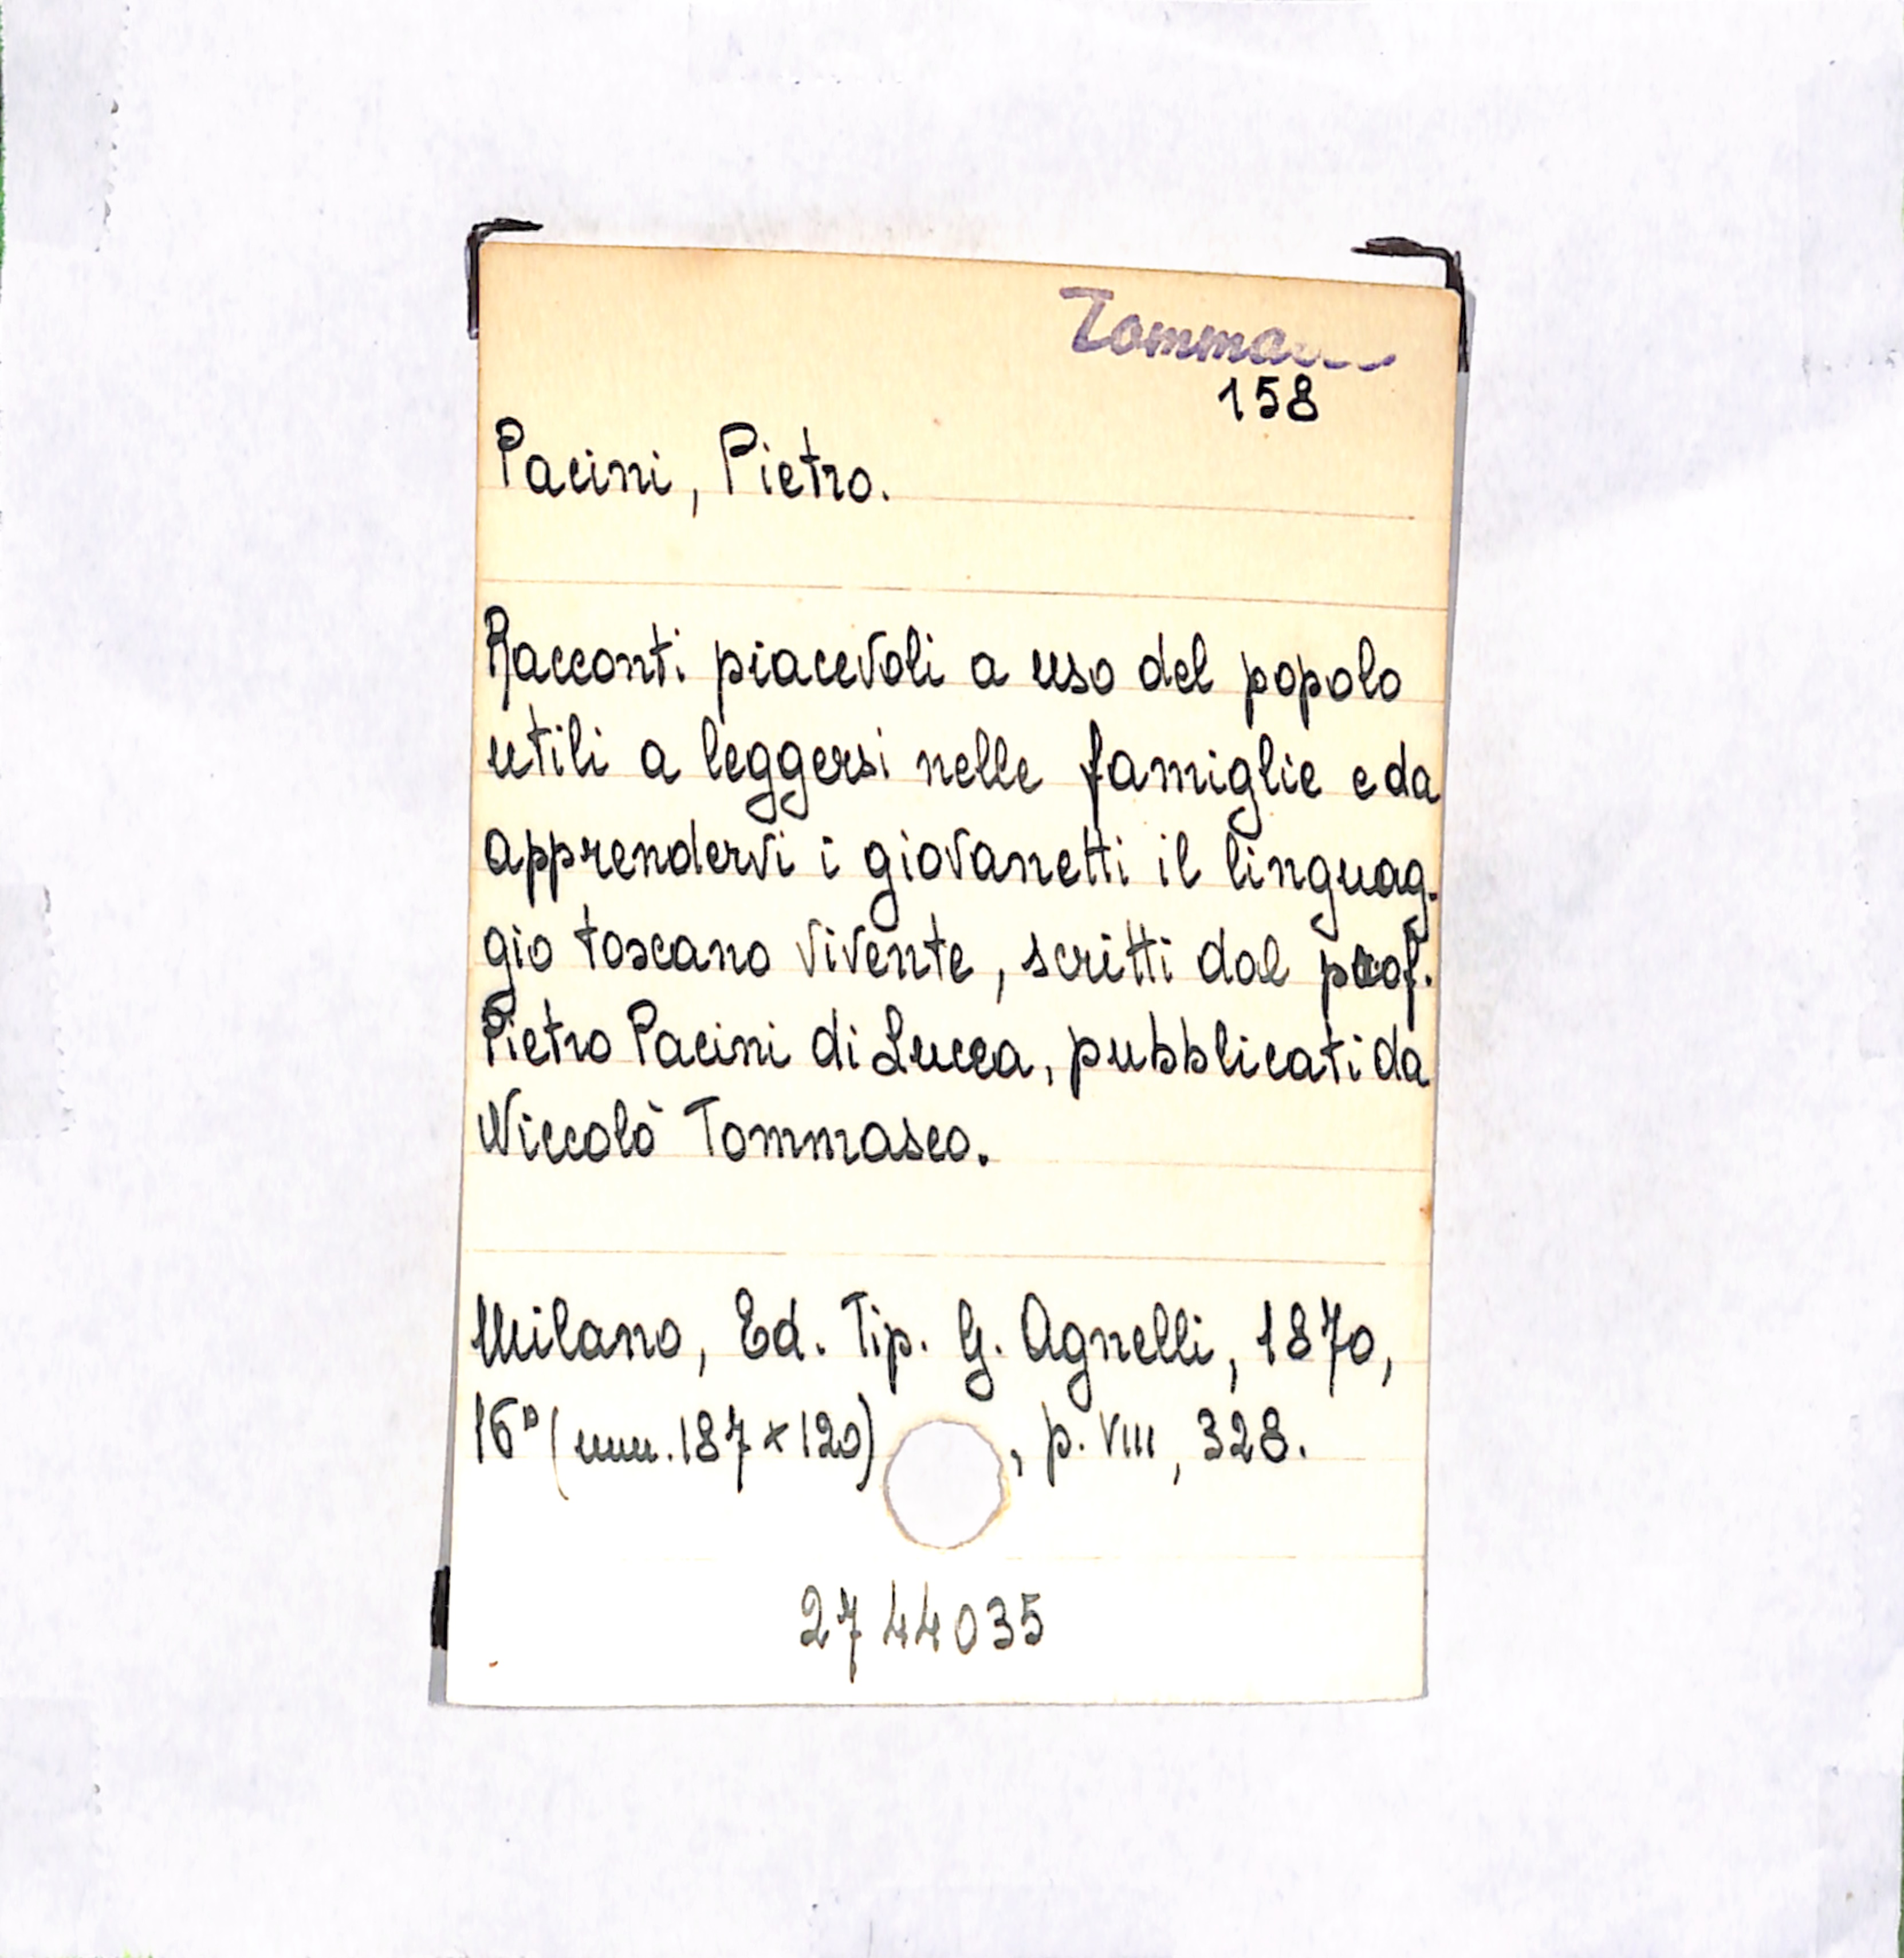 158
Pacini, Pietro.
Racconti piacevoli a uso del popolo
utili a leggersi nelle famiglie e da
apprendervi i giovanetti il linguag-
gio toscano vivente, scritti dal prof.
Pietro Pacini di Lucca, pubblicati da
Niccolò Tommaseo.
Milano, Ed. Tip. G. Agnelli, 1870,
16° (mm. 187 x 120) , p. VIII, 328.
2744035